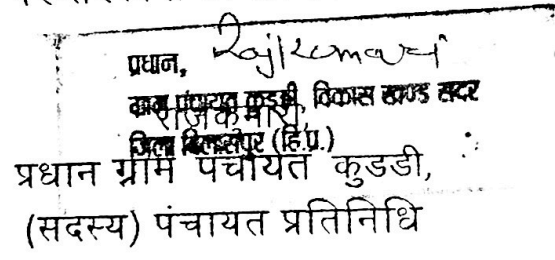 प्रधान, Rajkumari
ग्राम पंचायत कुडडी, विकास खण्ड सदर
राजकुमारी,
जिला बिलासपुर (हि.प्र.)
प्रधान ग्राम पंचायत कुडडी,
(सदस्य) पंचायत प्रतिनिधि